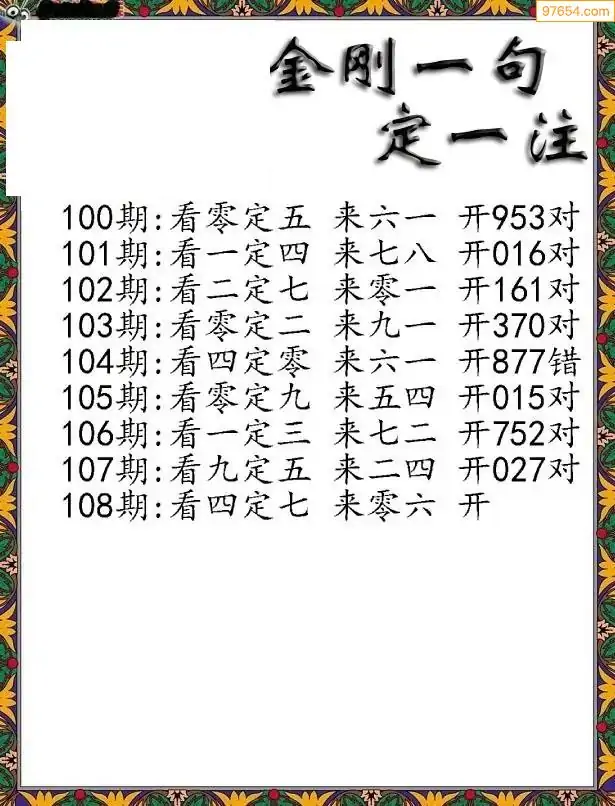 97654.com
金刚一句
定一注
100期:看零定五 来六一 开953对
101期:看一定四 来七八 开016对
102期:看二定七 来零一 开161对
103期:看零定二 来九一 开370对
104期:看四定零 来六一 开877错
105期:看零定九 来五四 开015对
106期:看一定三 来七二 开752对
107期:看九定五 来二四 开027对
108期:看四定七 来零六 开